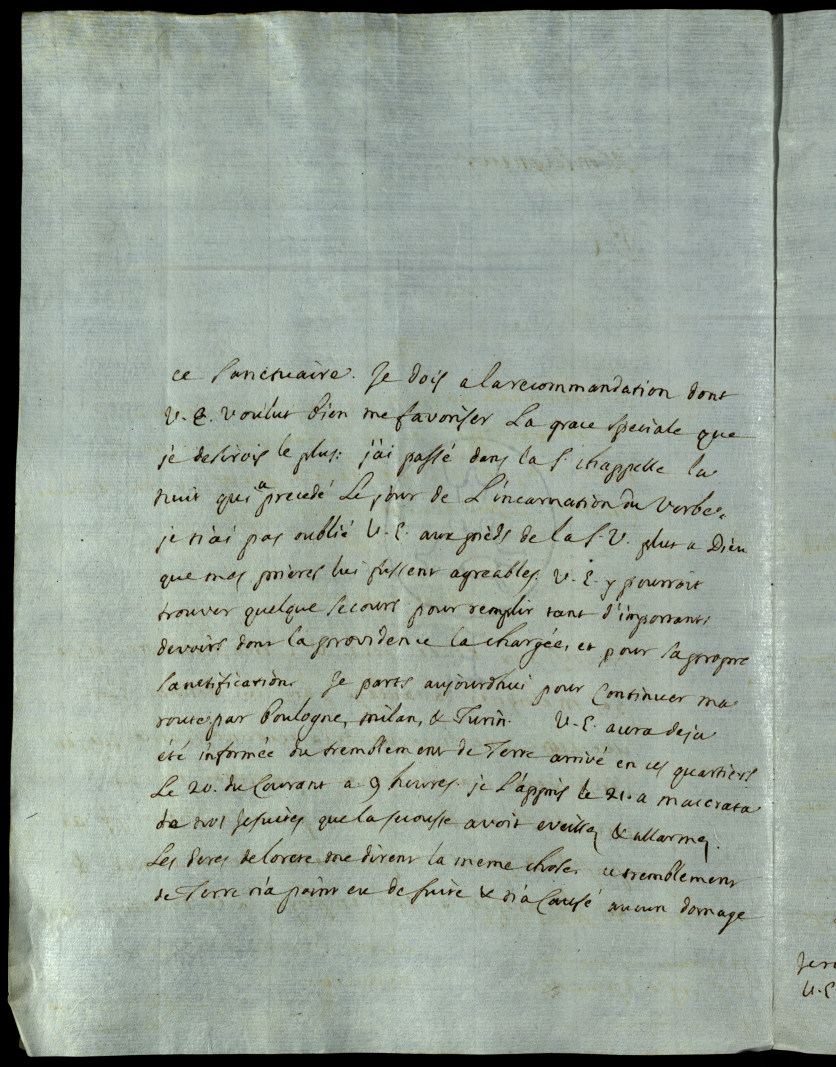 ce sanctuaire. Je dois a la recommandation dont
V. E. voulut bien me favoriser La grace speciale que
je desirois le plus: j'ai passé dans la S. chappelle la
nuit qui a precedé Le jour de L'incarnation du Verbe.
je n'ai pas oublié V. E. aux pieds de la S. V. plut a Dieu
que mes prieres lui fussent agreables. V. E. y pourroit
trouver quelque secours pour remplir tant d'importants
devoirs dont la providence la chargée, et pour sa propre
sanctification. Je parts aujourdhui pour Continuer ma
route par Boulogne, milan, & Turin. V. E. aura deja
été informée du tremblement de Terre arrivé en ces quartiers
Le 20. du Courant a 9 heures. je L'appris le 21. a macerata
de nos Jesuites que la secousse avoit eveillez & allarmez.
Les Peres de lorete me dirent la meme chose. ce tremblement
de Terre n'a point eu de suite & n'a Causé aucun domage
V. E